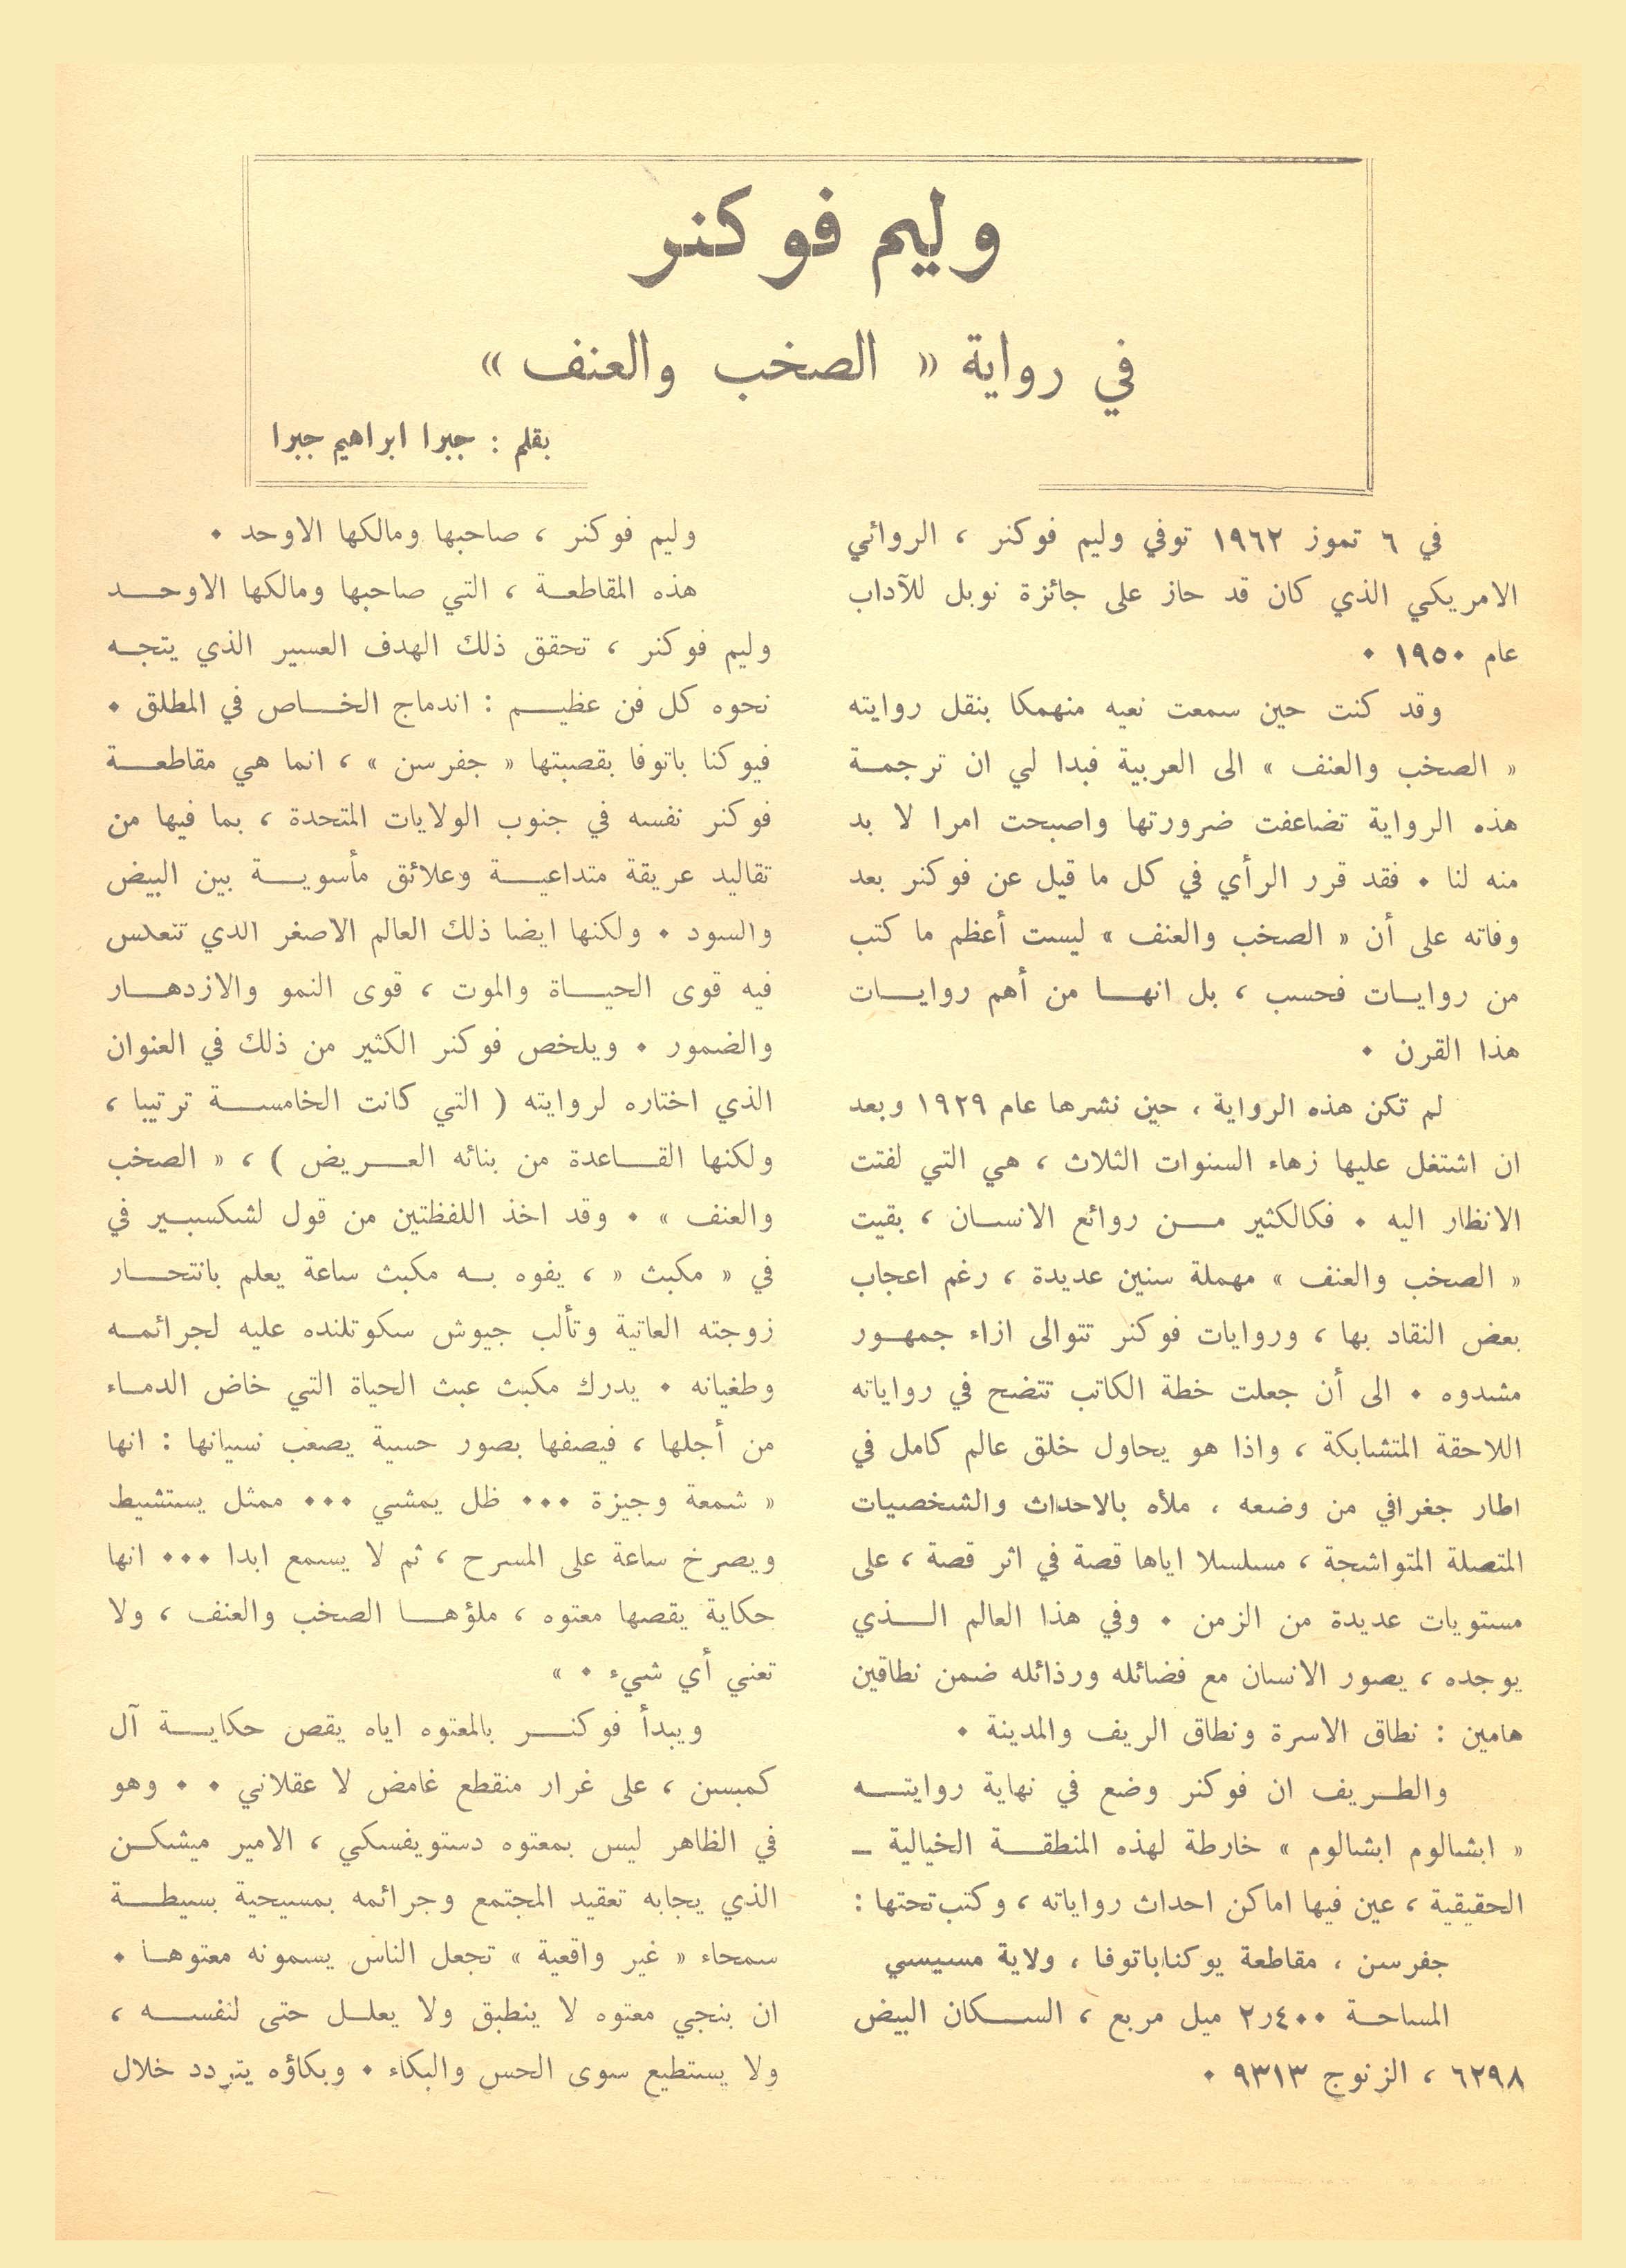 وليم فوكنر
في رواية « الصخب والعنف »
بقلم : جبرا ابراهيم جبرا
في ٦ تموز ١٩٦٢ توفي وليم فوكنر ، الروائي
الامريكي الذي كان قد حاز على جائزة نوبل للآداب
عام ١٩٥٠ ٠
وقد كنت حين سمعت نعيه منهمكا بنقل روايته
« الصخب والعنف » الى العربية فبدا لي ان ترجمة
هذه الرواية تضاعفت ضرورتها واصبحت امرا لا بد
منه لنا ٠ فقد قرر الرأي في كل ما قيل عن فوكنر بعد
وفاته على أن « الصخب والعنف » ليست أعظم ما كتب
من روايات فحسب ، بل انها من أهم روايات
هذا القرن ٠
لم تكن هذه الرواية ، حين نشرها عام ١٩٢٩ وبعد
ان اشتغل عليها زهاء السنوات الثلاث ، هي التي لفتت
الانظار اليه ٠ فكالكثير من روائع الانسان ، بقيت
« الصخب والعنف » مهملة سنين عديدة ، رغم اعجاب
بعض النقاد بها ، وروايات فوكنر تتوالى ازاء جمهور
مشدوه ٠ الى أن جعلت خطة الكاتب تتضح في رواياته
اللاحقة المتشابكة ، واذا هو يحاول خلق عالم كامل في
اطار جغرافي من وضعه ، ملأه بالاحداث والشخصيات
المتصلة المتواشجة ، مسلسلا اياها قصة في اثر قصة ، على
مستويات عديدة من الزمن ٠ وفي هذا العالم الذي
يوجده ، يصور الانسان مع فضائله ورذائله ضمن نطاقين
هامين : نطاق الاسرة ونطاق الريف والمدينة ٠
والطريف ان فوكنر وضع في نهاية روايته
« ابشالوم ابشالوم » خارطة لهذه المنطقة الخيالية ــ
الحقيقية ، عين فيها اماكن احداث رواياته ، وكتب تحتها :
جفرسن ، مقاطعة يوكناباتوفا ، ولاية مسيسي
المساحة ٢ر٤٠٠ ميل مربع ، السكان البيض
٦٢٩٨ ، الزنوج ٩٣١٣ ٠
وليم فوكنر ، صاحبها ومالكها الاوحد ٠
هذه المقاطعة ، التي صاحبها ومالكها الاوحد
وليم فوكنر ، تحقق ذلك الهدف العسير الذي يتجه
نحوه كل فن عظيم : اندماج الخاص في المطلق ٠
فيوكنا باتوفا بقصبتها « جفرسن » ، انما هي مقاطعة
فوكنر نفسه في جنوب الولايات المتحدة ، بما فيها من
تقاليد عريقة متداعية وعلائق مأسوية بين البيض
والسود ٠ ولكنها ايضا ذلك العالم الاصغر الذي تنعكس
فيه قوى الحياة والموت ، قوى النمو والازدهار
والضمور ٠ ويلخص فوكنر الكثير من ذلك في العنوان
الذي اختاره لروايته ( التي كانت الخامسة ترتيبا ،
ولكنها القاعدة من بنائه العريض ) ، « الصخب
والعنف » ٠ وقد اخذ اللفظتين من قول لشكسبير في
في « مكبث « ، يفوه به مكبث ساعة يعلم بانتحار
زوجته العاتية وتألب جيوش سكوتلنده عليه لجرائمه
وطغيانه ٠ يدرك مكبث عبث الحياة التي خاض الدماء
من أجلها ، فيصفها بصور حسية يصعب نسيانها : انها
« شمعة وجيزة ٠٠٠ ظل يمشي ٠٠٠ ممثل يستشيط
ويصرخ ساعة على المسرح ، ثم لا يسمع ابدا ٠٠٠ انها
حكاية يقصها معتوه ، ملؤها الصخب والعنف ، ولا
تعني أي شيء ٠ »
ويبدأ فوكنر بالمعتوه اياه يقص حكاية آل
كمبسن ، على غرار منقطع غامض لا عقلاني ٠ ٠ وهو
في الظاهر ليس بمعتوه دستويفسكي ، الامير ميشكن
الذي يجابه تعقيد المجتمع وجرائمه بمسيحية بسيطة
سمحاء « غير واقعية » تجعل الناس يسمونه معتوها ٠
ان بنجي معتوه لا ينطبق ولا يعلل حتى لنفسه ،
ولا يستطيع سوى الحس والبكاء ٠ وبكاؤه يتردد خلال